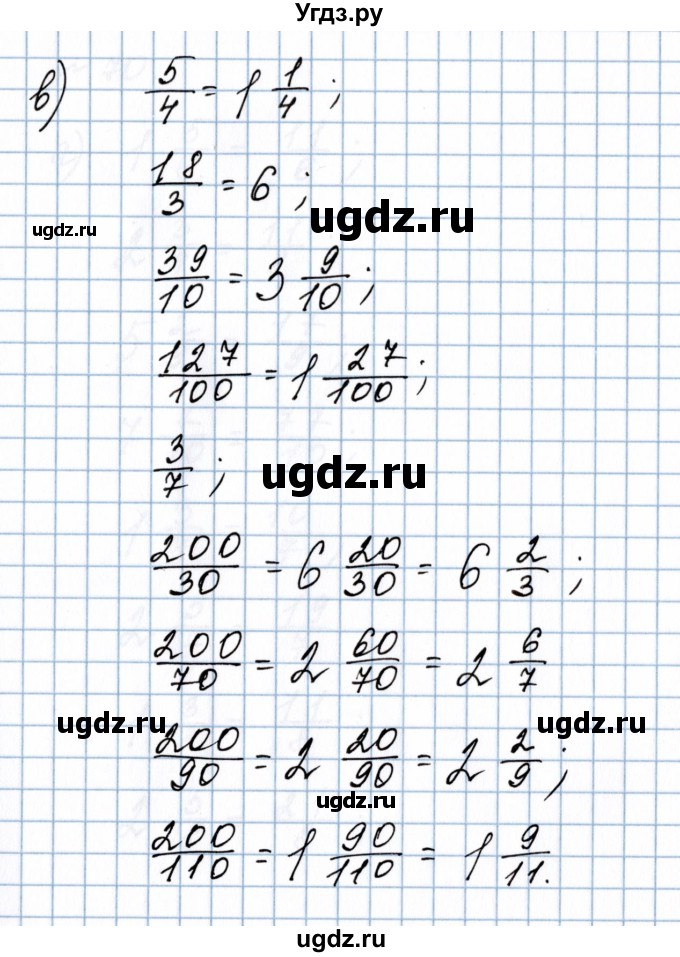 Угдз.ру
в) 5/4 = 1 1/4 ;
ugdz.ru
18/3 = 6 ;
ugdz.ru
39/10 = 3 9/10 ;
127/100 = 1 27/100 ;
3/7 ;
ugdz.ru
200/30 = 6 20/30 = 6 2/3 ;
200/70 = 2 60/70 = 2 6/7
ugdz.ru
ugdz.ru
200/90 = 2 20/90 = 2 2/9 ;
ugdz.ru
200/110 = 1 90/110 = 1 9/11.
ugdz.ru